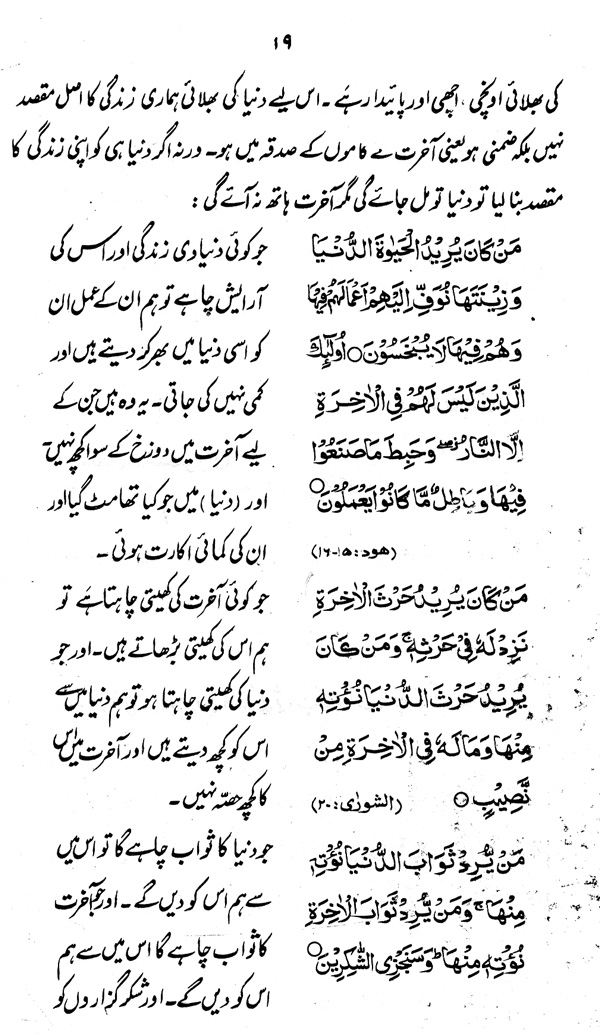 ۱۹
کی بھلائی اونچی، اچھی اور پائیدار ہے۔ اس لیے دنیا کی بھلائی ہماری زندگی کا اصل مقصد
نہیں بلکہ ضمنی ہو یعنی آخرت کے کاموں کے صدقہ میں ہو۔ ورنہ اگر دنیا ہی کو اپنی زندگی کا
مقصد بنا لیا تو دنیا تو مل جائے گی مگر آخرت ہاتھ نہ آئے گی:
مَنْ كَانَ يُرِيْدُ الْحَيٰوةَ الدُّنْيَا
وَزِيْنَتَهَا نُوَفِّ اِلَيْهِمْ اَعْمَالَهُمْ فِيْهَا
وَهُمْ فِيْهَا لَا يُبْخَسُوْنَ ○ اُولٰٓئِكَ
الَّذِيْنَ لَيْسَ لَهُمْ فِي الْاٰخِرَةِ
اِلَّا النَّارُ ۖ وَحَبِطَ مَا صَنَعُوْا
فِيْهَا وَبَاطِلٌ مَّا كَانُوْا يَعْمَلُوْنَ ○
(هود: ۱۵-۱۶)
جو کوئی دنیاوی زندگی اور اس کی
آرایش چاہے تو ہم ان کے عمل ان
کو اسی دنیا میں بھر کر دیتے ہیں اور
کمی نہیں کی جاتی۔ یہ وہ ہیں جن کے
لیے آخرت میں دوزخ کے سوا کچھ نہیں
اور (دنیا) میں جو کیا تھا مٹ گیا اور
ان کی کمائی اکارت ہوئی۔
مَنْ كَانَ يُرِيْدُ حَرْثَ الْاٰخِرَةِ
نَزِدْ لَهٗ فِيْ حَرْثِهٖ ۚ وَمَنْ كَانَ
يُرِيْدُ حَرْثَ الدُّنْيَا نُؤْتِهٖ
مِنْهَا وَمَا لَهٗ فِي الْاٰخِرَةِ مِنْ
نَّصِيْبٍ ○ (الشورٰى: ۲۰)
جو کوئی آخرت کی کھیتی چاہتا ہے تو
ہم اس کی کھیتی بڑھاتے ہیں۔ اور جو
دنیا کی کھیتی چاہتا ہو تو ہم دنیا میں سے
اس کو کچھ دیتے ہیں اور آخرت میں اس
کا کچھ حصّہ نہیں۔
مَنْ يُّرِدْ ثَوَابَ الدُّنْيَا نُؤْتِهٖ
مِنْهَا ۚ وَمَنْ يُّرِدْ ثَوَابَ الْاٰخِرَةِ
نُؤْتِهٖ مِنْهَا ؕ وَسَنَجْزِي الشّٰكِرِيْنَ ○
جو دنیا کا ثواب چاہے گا تو اس میں
سے ہم اس کو دیں گے۔ اور جو آخرت
کا ثواب چاہے گا اس میں سے ہم
اس کو دیں گے۔ اور شکر گزاروں کو